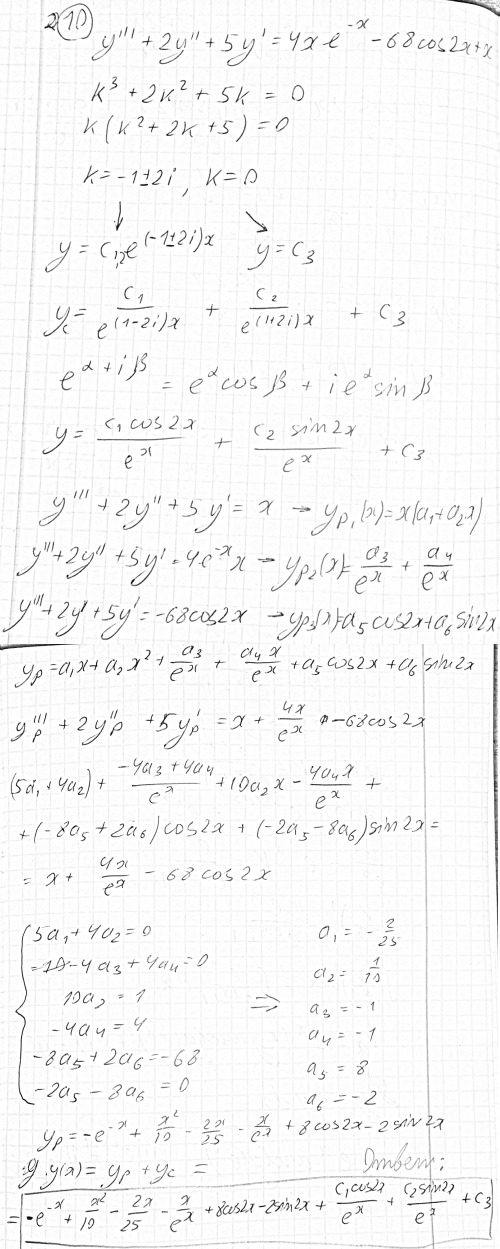 210
y''' + 2y'' + 5y' = 4xe^{-x} - 68cos2x + x
k³ + 2k² + 5k = 0
k(k² + 2k + 5) = 0
k = -1±2i, k = 0
y = C₁,₂e^{(-1±2i)x} y = C₃
y_c = C₁/e^{(1-2i)x} + C₂/e^{(1+2i)x} + C₃
e^{α + iβ} = e^α cos β + i e^α sin β
y = C₁cos2x/e^x + C₂ sin2x/e^x + C₃
y''' + 2y'' + 5y' = x → y_{p₁}(x) = x(a₁+a₂x)
y'''+2y'' +5y' = 4e^{-x}x → y_{p2}(x)= a₃/e^x + a₄/e^x
y'''+2y'' + 5y' = -68cos2x → y_{p3}(x)=a₅cos2x+a₆sin2x
y_p = a₁x + a₂x² + a₃/e^x + a₄x/e^x + a₅cos2x + a₆sin2x
y_p''' + 2y_p'' + 5y_p' = x + 4x/e^x - 68cos2x
(5a₁+4a₂) + (-4a₃+4a₄)/e^x + 10a₂x - 4a₄x/e^x +
+ (-8a₅+2a₆)cos2x + (-2a₅-8a₆)sin2x =
= x + 4x/e^x - 68cos2x
5a₁+4a₂=0 a₁ = -2/25
-4a₃+4a₄=0 a₂ = 1/10
10a₂ = 1 ⇒ a₃ = -1
-4a₄ = 4 a₄ = -1
-8a₅ + 2a₆ = -68 a₅ = 8
-2a₅ - 8a₆ = 0 a₆ = -2
y_p = -e^{-x} + x²/10 - 2x/25 - x/e^x + 8cos2x - 2sin2x
y(x) = y_p + y_c = Ответ:
= -e^{-x} + x²/10 - 2x/25 - x/e^x + 8cos2x - 2sin2x + C₁cos2x/e^x + C₂sin2x/e^x + C₃